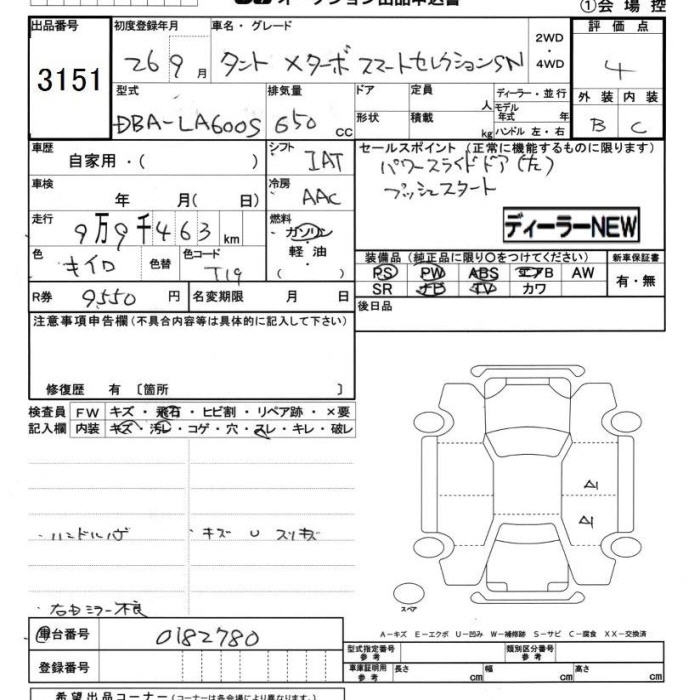 オークション出品申込書 ①会場控
出品番号 初度登録年月 車名・グレード 2WD ・ 4WD 評価点
3151 26 9月 タント Xターボ スマートセレクションSN 4
型式 排気量 ドア 定員 人 ディーラー・並行 外装 内装
DBA-LA600S 650 cc 形状 積載 kg モデル年式 年 ハンドル 左・右 B C
車歴 自家用・( ) シフト IAT セールスポイント (正常に機能するものに限ります)
パワースライドドア(左)
車検 年 月( 日) 冷房 AAC プッシュスタート
走行 9万9千463km 燃料 ガソリン・軽油・( ) ディーラーNEW
色 キイロ 色替 色コード T19 装備品 (純正品に限り○をつけてください) 新車保証書
PS PW ABS エアB AW 有・無
R券 9550円 名変期限 月 日 SR ナビ TV カワ
注意事項申告欄(不具合内容等は具体的に記入して下さい) 後日品
修復歴 有 〔箇所 〕
検査員 FW キズ・飛石・ヒビ割・リペア跡・×要
記入欄 内装 キズ・汚レ・コゲ・穴・スレ・キレ・破レ
A1
A1
・ハンドルハゲ ・キズ U スリキズ
右ミラー不良
スペア
A-キズ E-エクボ U-凹み W-補修跡 S-サビ C-腐食 XX-交換済
車台番号 0182780
型式指定番号 参考 類別区分番号 参考
登録番号 車庫証明用 参考 長さ cm 幅 cm 高さ cm
希望出品コーナー(コーナーは各会場により異なります。)